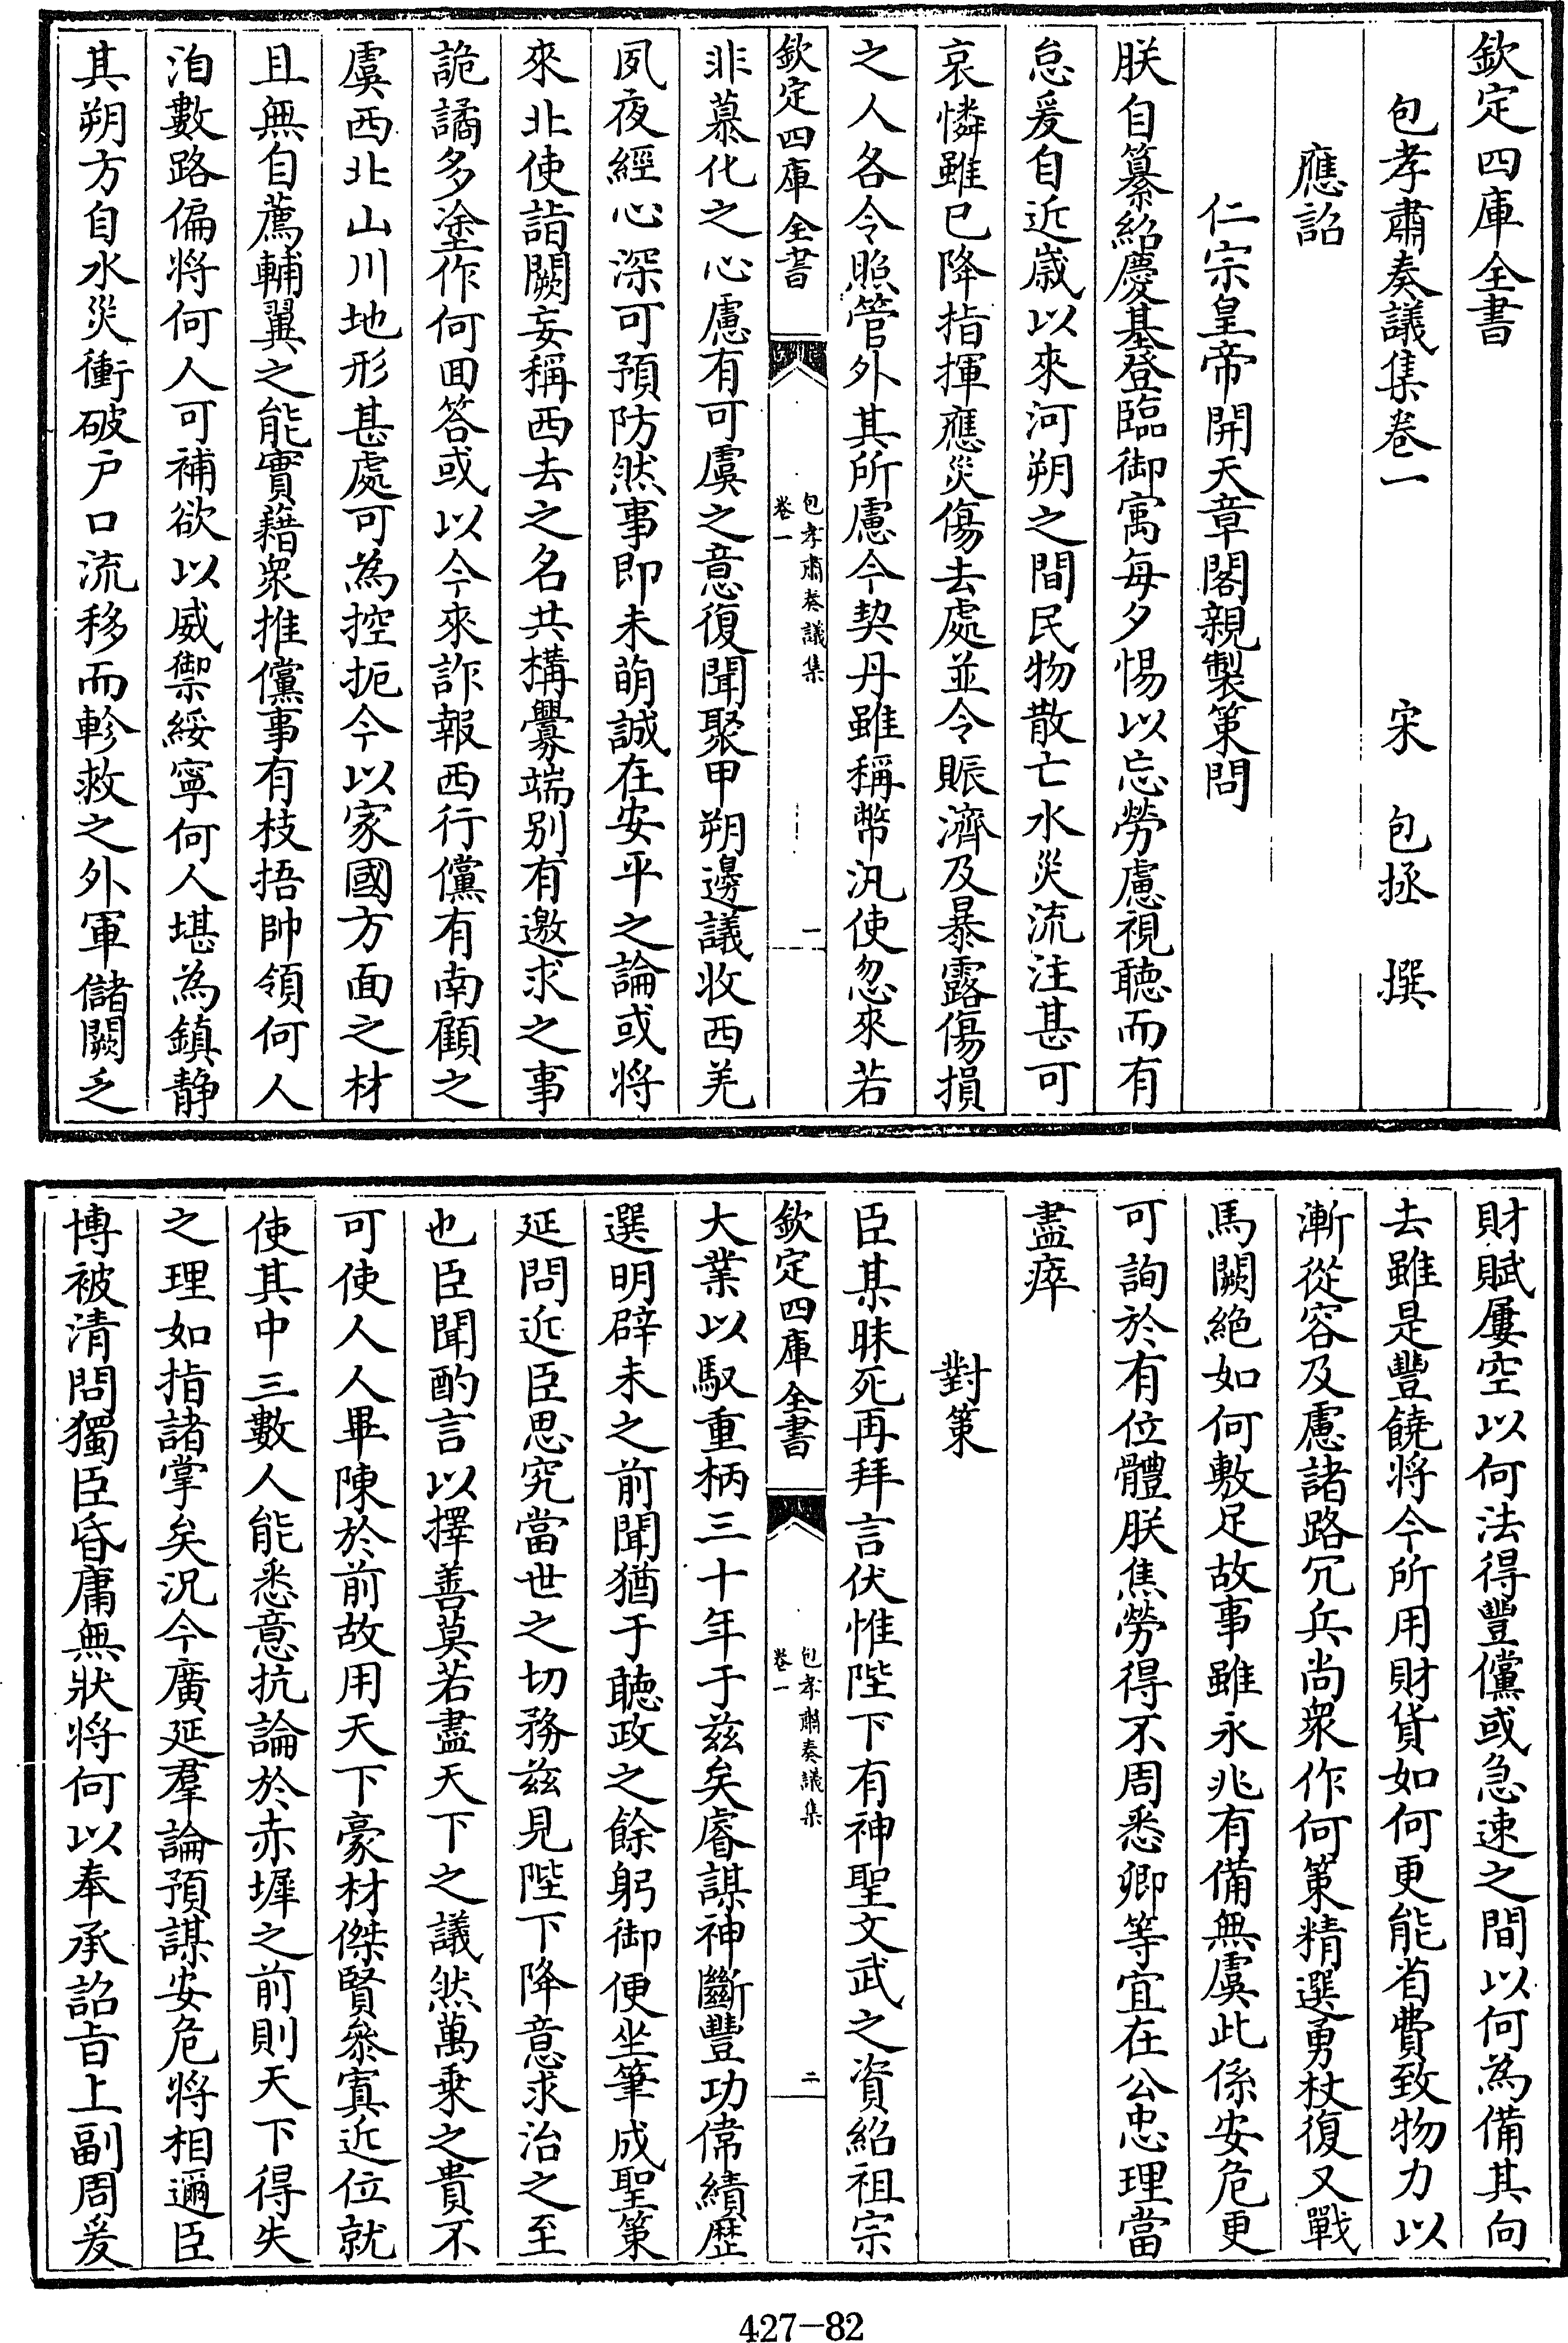 欽定四庫全書
包孝肅奏議集卷一 宋 包拯 撰
應詔
仁宗皇帝開天章閣親製策問
朕自纂紹慶基登臨御寓每夕惕以忘勞慮視聽而有
怠爰自近嵗以來河朔之間民物散亡水災流注甚可
哀憐雖已降指揮應災傷去處並令賑濟及暴露傷損
之人各令照管外其所慮今契丹雖稱幣汎使忽來若
欽定四庫全書
包孝肅奏議集
卷一
一
非慕化之心慮有可虞之意復聞聚甲朔邊議收西羌
夙夜經心深可預防然事即未萌誠在安平之論或将
來北使詣闕妄稱西去之名共構釁端别有邀求之事
詭譎多塗作何囬答或以今來詐報西行儻有南顧之
虞西北山川地形甚處可為控扼今以家國方面之材
且無自薦輔翼之能實藉衆推儻事有枝捂帥領何人
洎數路偏将何人可補欲以威禦綏寧何人堪為鎮静
其朔方自水災衝破户口流移而軫救之外軍儲闕乏
財賦屢空以何法得豐儻或急速之間以何為備其向
去雖是豐饒将今所用財貨如何更能省費致物力以
漸從容及慮諸路冗兵尚衆作何策精選勇杖復又戰
馬闕絶如何敷足故事雖永兆有備無虞此係安危更
可詢於有位體朕焦勞得不周悉卿等宜在公忠理當
盡瘁
對策
臣某昧死再拜言伏惟陛下有神聖文武之資紹祖宗
欽定四庫全書
包孝肅奏議集
卷一
二
大業以馭重柄三十年于兹矣睿謀神斷豐功偉績歴
選明辟未之前聞猶于聽政之餘躬御便坐筆成聖策
延問近臣思究當世之切務兹見陛下降意求治之至
也臣聞酌言以擇善莫若盡天下之議然萬乘之貴不
可使人人畢陳於前故用天下豪材傑賢叅寘近位就
使其中三數人能悉意抗論於赤墀之前則天下得失
之理如指諸掌矣況今廣延羣論預謀安危将相邇臣
博被清問獨臣昏庸無狀将何以奉承詔旨上副周爰
427-82